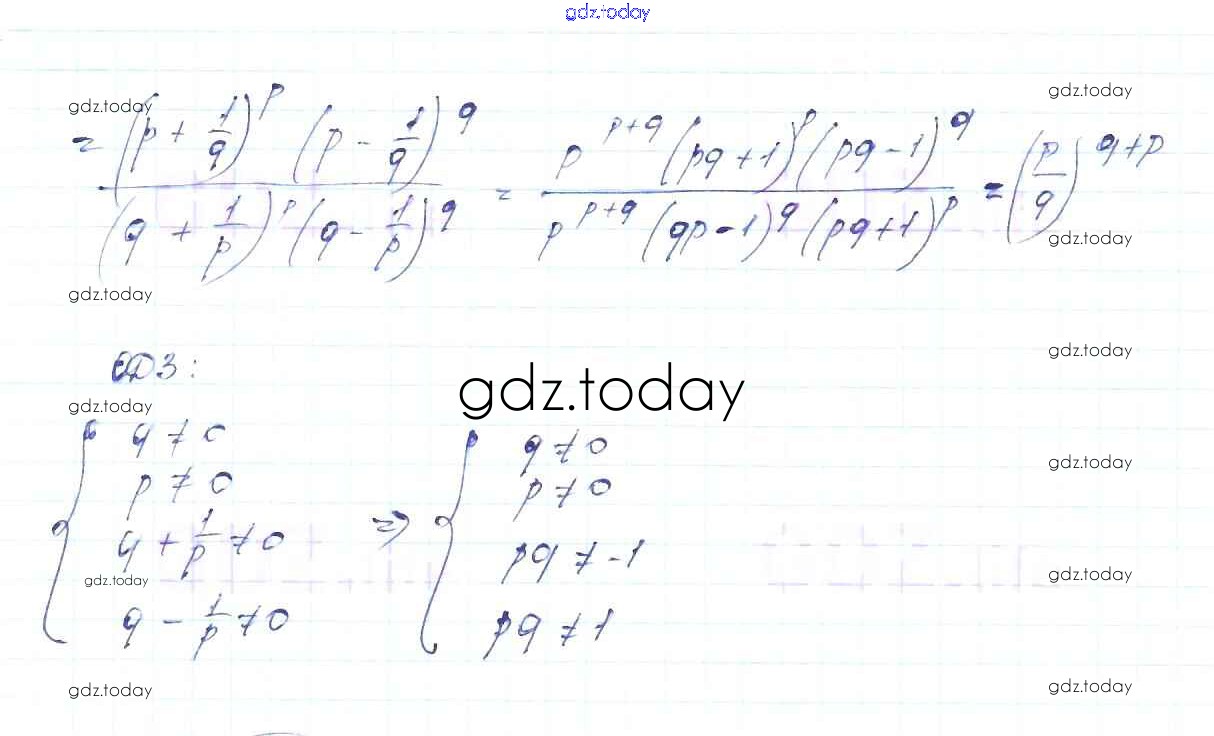 gdz.today
gdz.today gdz.today
= ((p + 1/q)^p (p - 1/q)^q) / ((q + 1/p)^p (q - 1/p)^q) = (p^(p+q) (pq+1)^p (pq-1)^q) / (p^(p+q) (qp-1)^q (pq+1)^p) = (p/q)^(q+p)
gdz.today
gdz.today
gdz.today
ОДЗ:
gdz.today
gdz.today
{ q ≠ 0 { q ≠ 0
p ≠ 0 p ≠ 0
gdz.today
q + 1/p ≠ 0 => pq ≠ -1
gdz.today gdz.today
q - 1/p ≠ 0 pq ≠ 1
gdz.today gdz.today